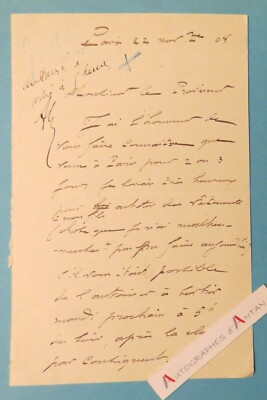 Paris 22 nov bre 08
autorisé à
Monsieur le Président
J'ai l'honneur de
vous faire connaître que
venu à Paris pour 2 ou 3
jours, je serais très heureux
pour acheter des vêtements
(chose que je n'ai malheu-
reusement pas pu faire aujourd'hui)
s'il vous était possible
de l'autoriser à sortir
mardi prochain à 5h
du soir, après la
par conséquent.
AUTOGRAPHES D'ANTAN